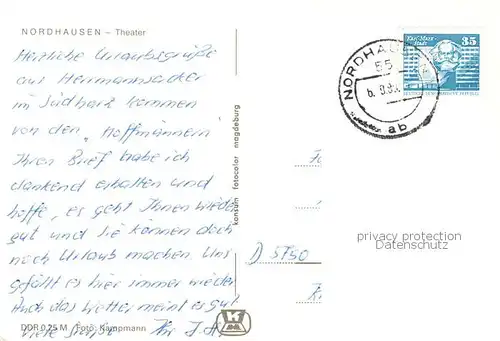 NORDHAUSEN – Theater
Herzliche Urlaubsgrüße
aus Herrmannsacker
im Südharz kommen
von den „Hoffmännern"
Ihren Brief habe ich
dankend erhalten und
hoffe, es geht Ihnen wieder
gut und Sie können doch
noch Urlaub machen. Uns
gefällt es hier immer wieder
Auch das Wetter meint es gut
Viele Grüße Ihr J. H.
DDR 0,25 M Foto: Kampmann
konsum fotocolor magdeburg
NORDHAUSEN
55
ab
Karl-Marx-
Stadt
35
D) 5750
privacy protection
Datenschutz